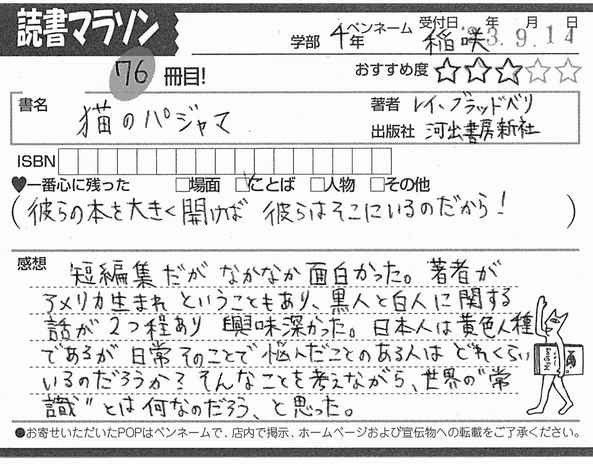 読書マラソン
学部 4年 ペンネーム 稲咲 受付日 年 月 日 3.9.14
76 冊目! おすすめ度 ☆☆☆☆☆
書名 猫のパジャマ
著者 レイ・ブラッドベリ
出版社 河出書房新社
ISBN
♥一番心に残った □場面 ☑ことば □人物 □その他
(彼らの本を大きく開けば 彼らはそこにいるのだから!)
感想
短編集だが なかなか面白かった。著者が
アメリカ生まれ ということもあり、黒人と白人に関する
話が 2つ程あり 興味深かった。日本人は黄色人種
であるが 日常 そのことで 悩んだことのある人は どれくらい
いるのだろうか? そんなことを考えながら、世界の"常
識"とは何なのだろう、と思った。
●お寄せいただいたPOPはペンネームで、店内で掲示、ホームページおよび宣伝物への転載をご了承ください。